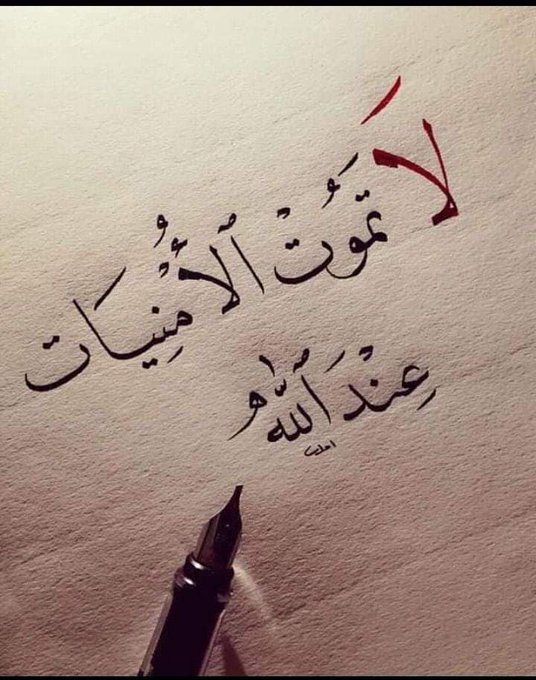 لَا تَمُوْتُ ٱلْأُمْنِيَات
عِنْدَ ٱللَّه